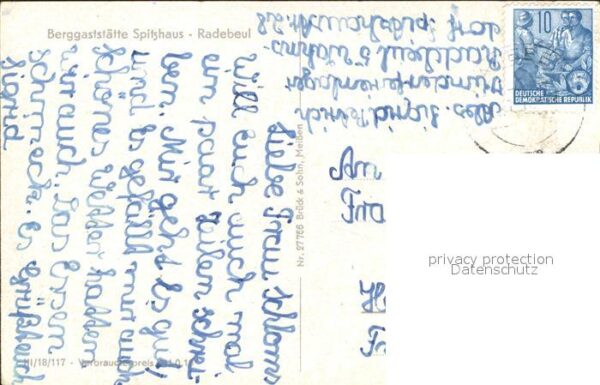 Berggaststätte Spitzhaus - Radebeul
Liebe Frau Schloms
will euch auch mal
ein paar Zeilen schrei-
ben. Mir geht es gut
und es gefällt mir auch
schönes Wetter hatten
wir auch. Das Essen
schmeckt. Es grüßt euch
Sigrid
Abs. Sigrid
Kinderferienlager
Radebeul 5
dorf Spitzhausstr. 28
Nr. 27768 Brück & Sohn, Meißen
III/18/117 - Verbraucherpreis
10
DEUTSCHE
DEMOKRATISCHE REPUBLIK
privacy protection
Datenschutz